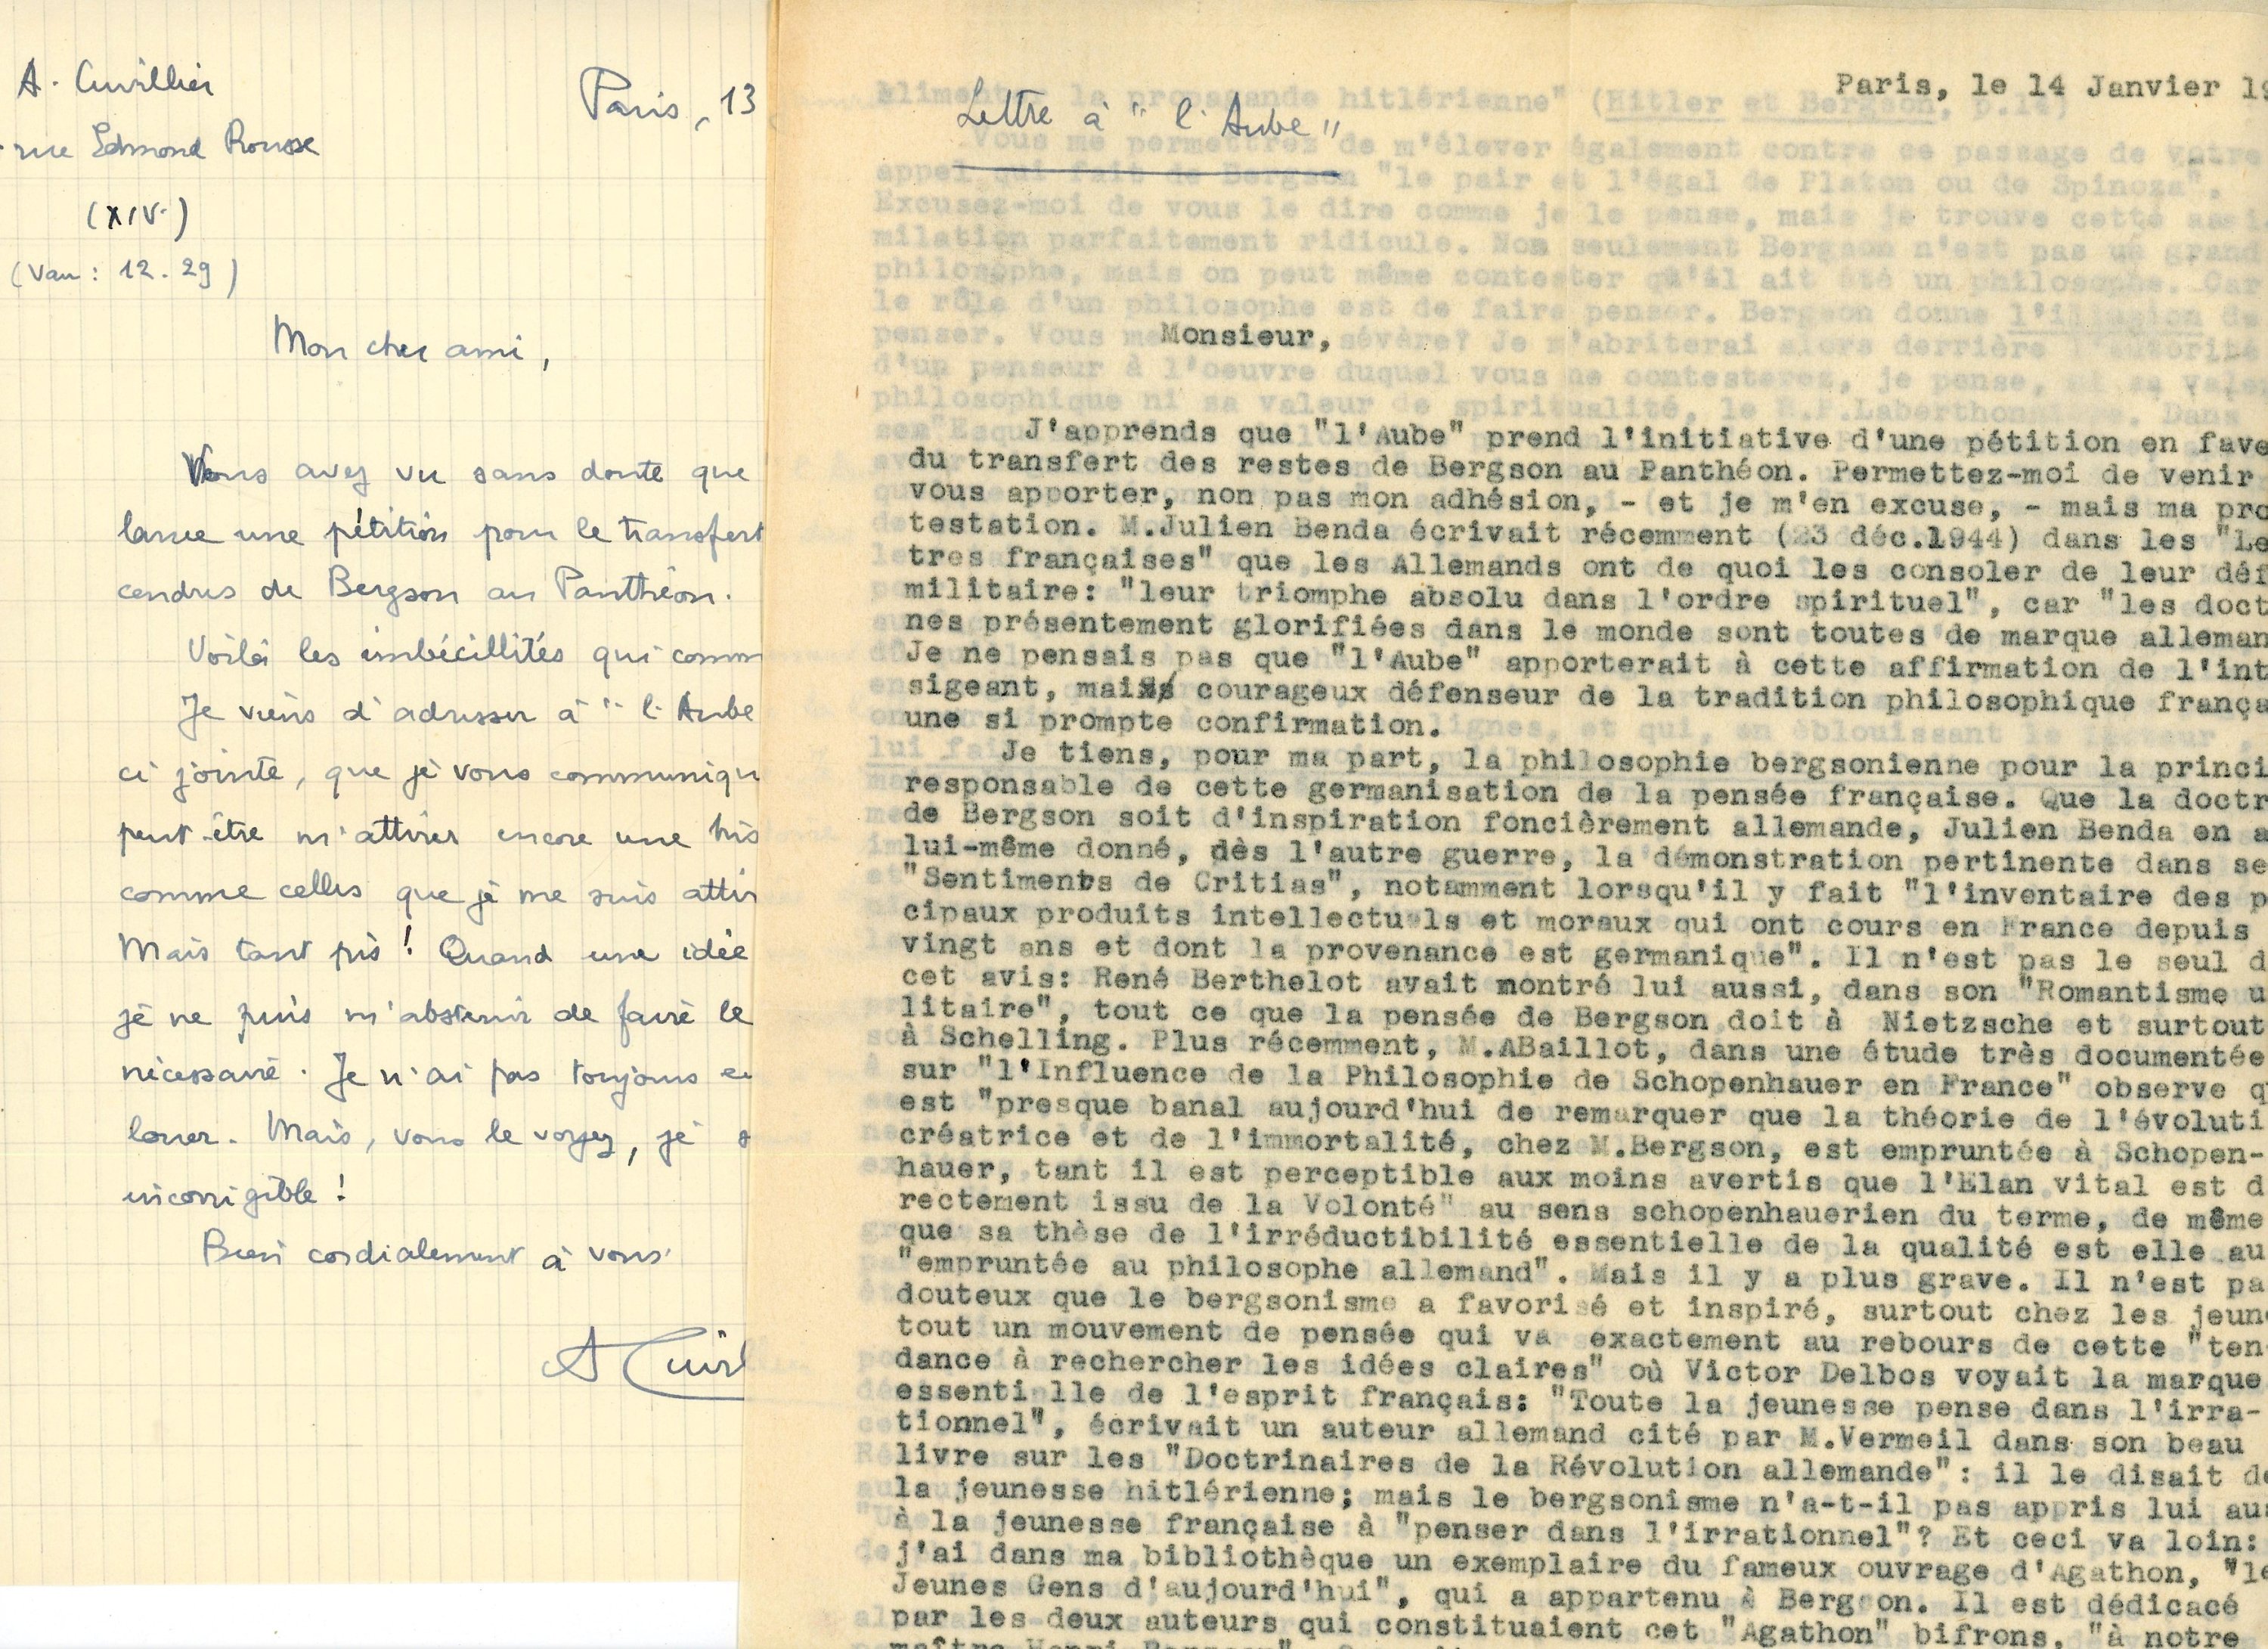 A. Cuvillier
rue Edmond Rousse
(XIV.)
(Vau : 12.29)
Paris, 13
Mon cher ami,
Vous avez vu sans doute que
lance une pétition pour le transfert
cendres de Bergson au Panthéon.
Voilà les imbécillités qui comm
Je viens d'adresser à "l'Aube
ci jointe, que je vous communiqu
peut-être m'attirer encore une his
comme celles que je me suis attir
Mais tant pis ! Quand une idée
je ne puis m'abstenir de faire le
nécessaire. Je n'ai pas toujours e
louer. Mais, vous le voyez, je s
incorrigible !
Bien cordialement à vous
A Cuvil
Paris, le 14 Janvier 19
Lettre à "l'Aube"
aliment à la propagande hitlérienne" (Hitler et Bergson, p.14)
Vous me permettrez de m'élever également contre ce passage de votre
appel qui fait de Bergson "le pair et l'égal de Platon ou de Spinoza".
Excusez-moi de vous le dire comme je le pense, mais je trouve cette assi
milation parfaitement ridicule. Non seulement Bergson n'est pas un grand
philosophe, mais on peut même contester qu'il ait été un philosophe. Car
le rôle d'un philosophe est de faire penser. Bergson donne l'illusion de
penser. Vous me sévère? Je m'abriterai alors derrière l'autorité
d'un penseur à l'oeuvre duquel vous ne contesterez, je pense, ni sa valeu
philosophique ni sa valeur de spiritualité, le R.P.Laberthonnière. Dans
Monsieur,
J'apprends que "l'Aube" prend l'initiative d'une pétition en fave
du transfert des restes de Bergson au Panthéon. Permettez-moi de venir
vous apporter, non pas mon adhésion, - et je m'en excuse, - mais ma pro
testation. M.Julien Benda écrivait récemment (23 déc.1944) dans les "Le
tres françaises" que les Allemands ont de quoi les consoler de leur déf
militaire: "leur triomphe absolu dans l'ordre spirituel", car "les doct
nes présentement glorifiées dans le monde sont toutes de marque alleman
Je ne pensais pas que "l'Aube" apporterait à cette affirmation de l'int
sigeant, mais courageux défenseur de la tradition philosophique frança
une si prompte confirmation.
lignes, et qui, en éblouissant le lecteur,
Je tiens, pour ma part, la philosophie bergsonienne pour la princi
responsable de cette germanisation de la pensée française. Que la doctr
de Bergson soit d'inspiration foncièrement allemande, Julien Benda en a
lui-même donné, dès l'autre guerre, la démonstration pertinente dans se
"Sentiments de Critias", notamment lorsqu'il y fait "l'inventaire des p
cipaux produits intellectuels et moraux qui ont cours en France depuis
vingt ans et dont la provenance est germanique". Il n'est pas le seul d
cet avis: René Berthelot avait montré lui aussi, dans son "Romantisme u
litaire", tout ce que la pensée de Bergson doit à Nietzsche et surtout
à Schelling. Plus récemment, M.ABaillot, dans une étude très documentée
sur "l'Influence de la Philosophie de Schopenhauer en France" observe q
est "presque banal aujourd'hui de remarquer que la théorie de l'évoluti
créatrice et de l'immortalité, chez M.Bergson, est empruntée à Schopen-
hauer, tant il est perceptible aux moins avertis que l'Elan vital est d
rectement issu de la Volonté" au sens schopenhauerien du terme, de même
que sa thèse de l'irréductibilité essentielle de la qualité est elle au
"empruntée au philosophe allemand". Mais il y a plus grave. Il n'est pa
douteux que le bergsonisme a favorisé et inspiré, surtout chez les jeun
tout un mouvement de pensée qui va exactement au rebours de cette "ten-
dance à rechercher les idées claires" où Victor Delbos voyait la marque
essentielle de l'esprit français: "Toute la jeunesse pense dans l'irra-
tionnel", écrivait un auteur allemand cité par M.Vermeil dans son beau
livre sur les "Doctrinaires de la Révolution allemande": il le disait de
la jeunesse hitlérienne; mais le bergsonisme n'a-t-il pas appris lui aus
à la jeunesse française à "penser dans l'irrationnel"? Et ceci va loin:
j'ai dans ma bibliothèque un exemplaire du fameux ouvrage d'Agathon, "le
Jeunes Gens d'aujourd'hui", qui a appartenu à Bergson. Il est dédicacé
par les deux auteurs qui constituaient cet "Agathon" bifrons, "à notre
maître Henri Bergson".